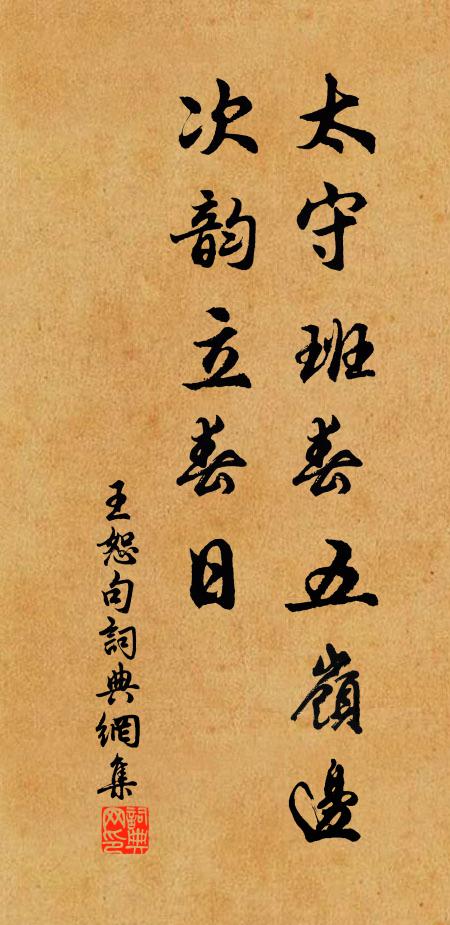 太守班春五嶺邊
次韵立春日
王恕句詞典網集
詞典网印